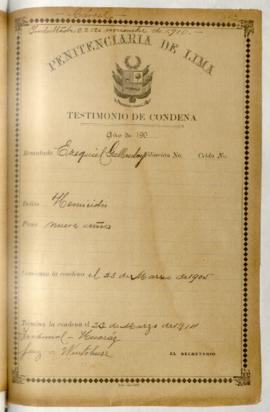 22 de noviembre de 1910.
PENITENCIARIA DE LIMA
TESTIMONIO DE CONDENA
Año de 190
Rematado Ezequiel Filiación No. Celda No.
Delito Homicidio
Pena nueve años
Comienza la condena el 23 de Marzo de 1905
Termina la condena el 23 de Marzo de 1914
Tribunal - Huaraz
Juez -
EL SECRETARIO